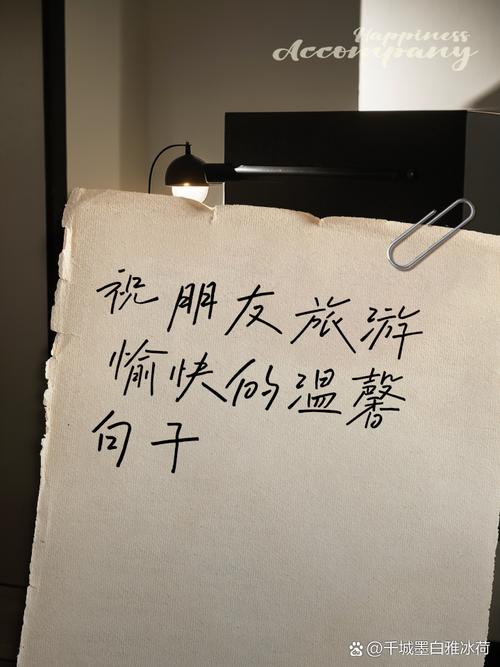 Happiness
Accompany
祝朋友旅游
愉快的温馨
句子
@千城墨白雅冰荷